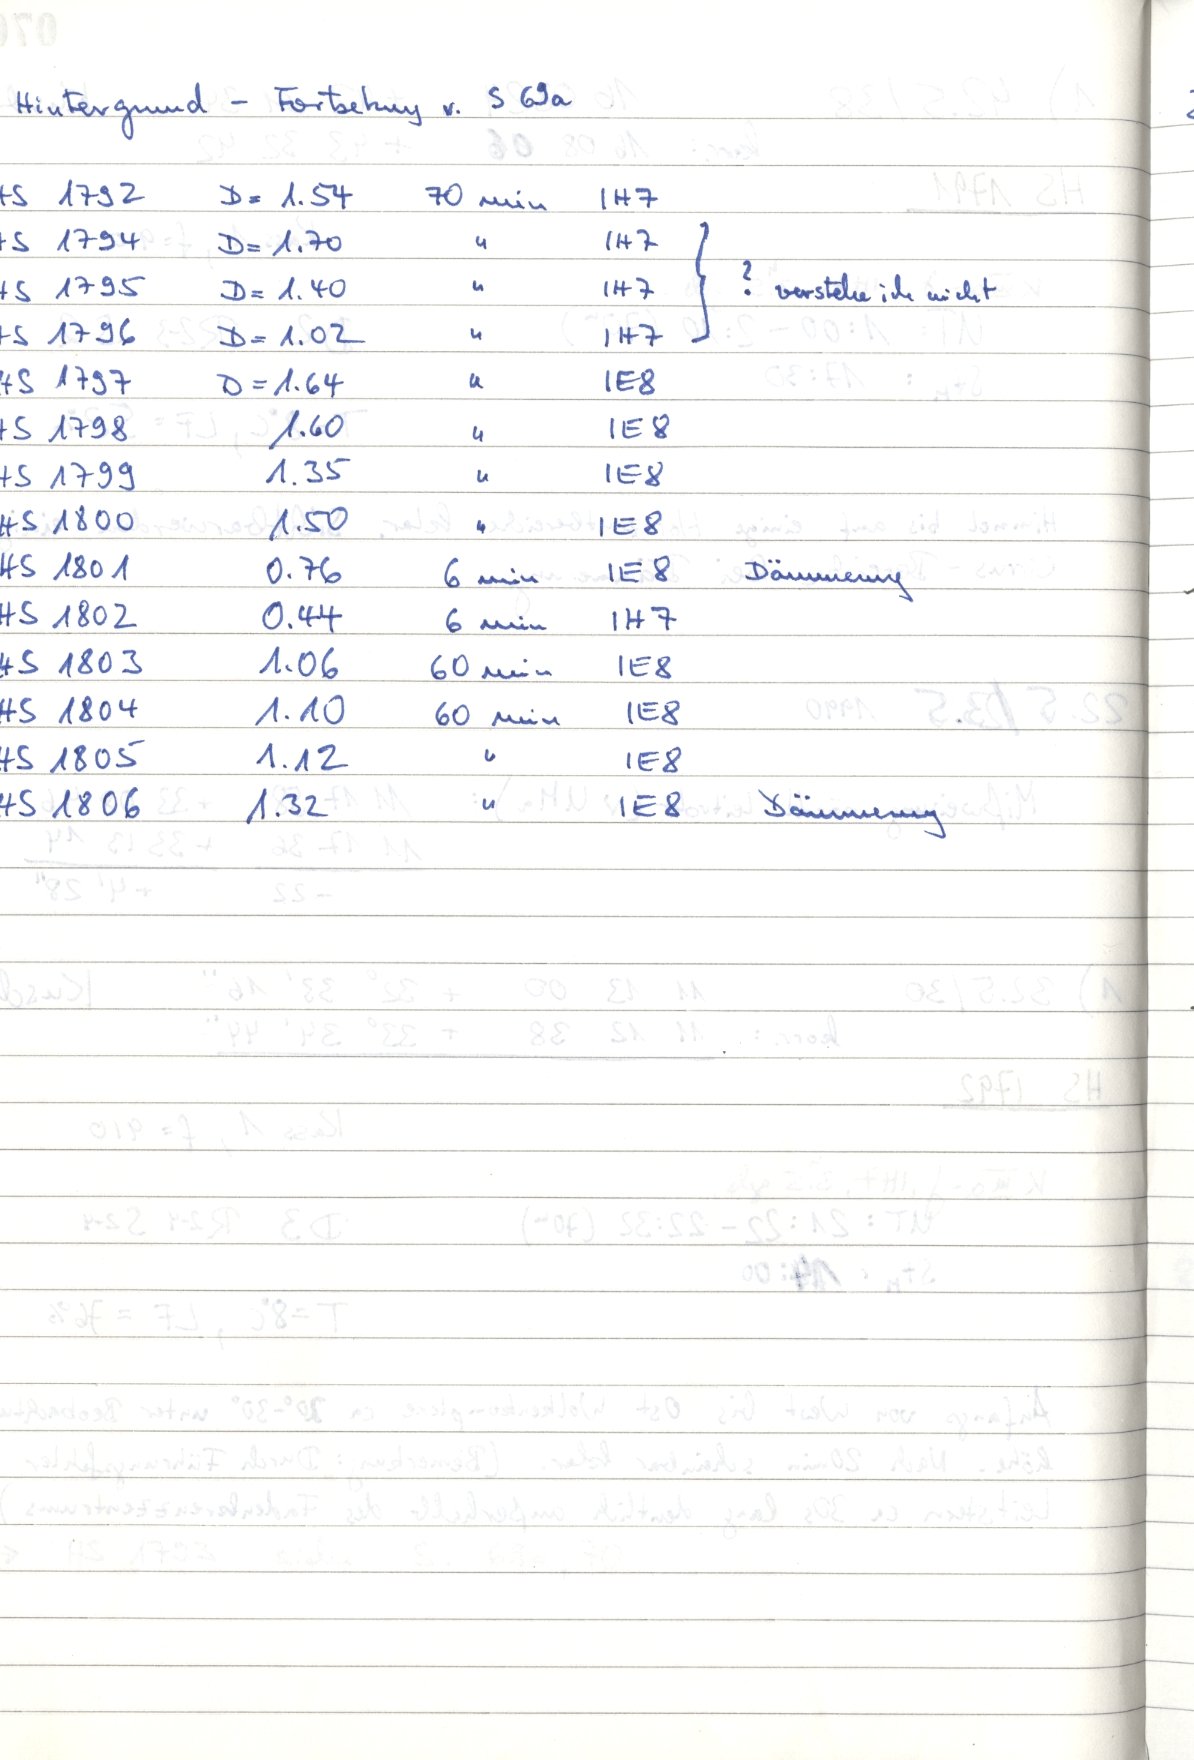 Hintergrund – Fortsetzung v. S 69a
HS 1792 D= 1.54 70 min IH7
HS 1794 D= 1.70 " IH7
HS 1795 D= 1.40 " IH7 } ? verstehe ich nicht
HS 1796 D= 1.02 " IH7
HS 1797 D= 1.64 " IE8
HS 1798 1.60 " IE8
HS 1799 1.35 " IE8
HS 1800 1.50 " IE8
HS 1801 0.76 6 min IE8 Dämmerung
HS 1802 0.44 6 min IH7
HS 1803 1.06 60 min IE8
HS 1804 1.10 60 min IE8
HS 1805 1.12 " IE8
HS 1806 1.32 " IE8 Dämmerung